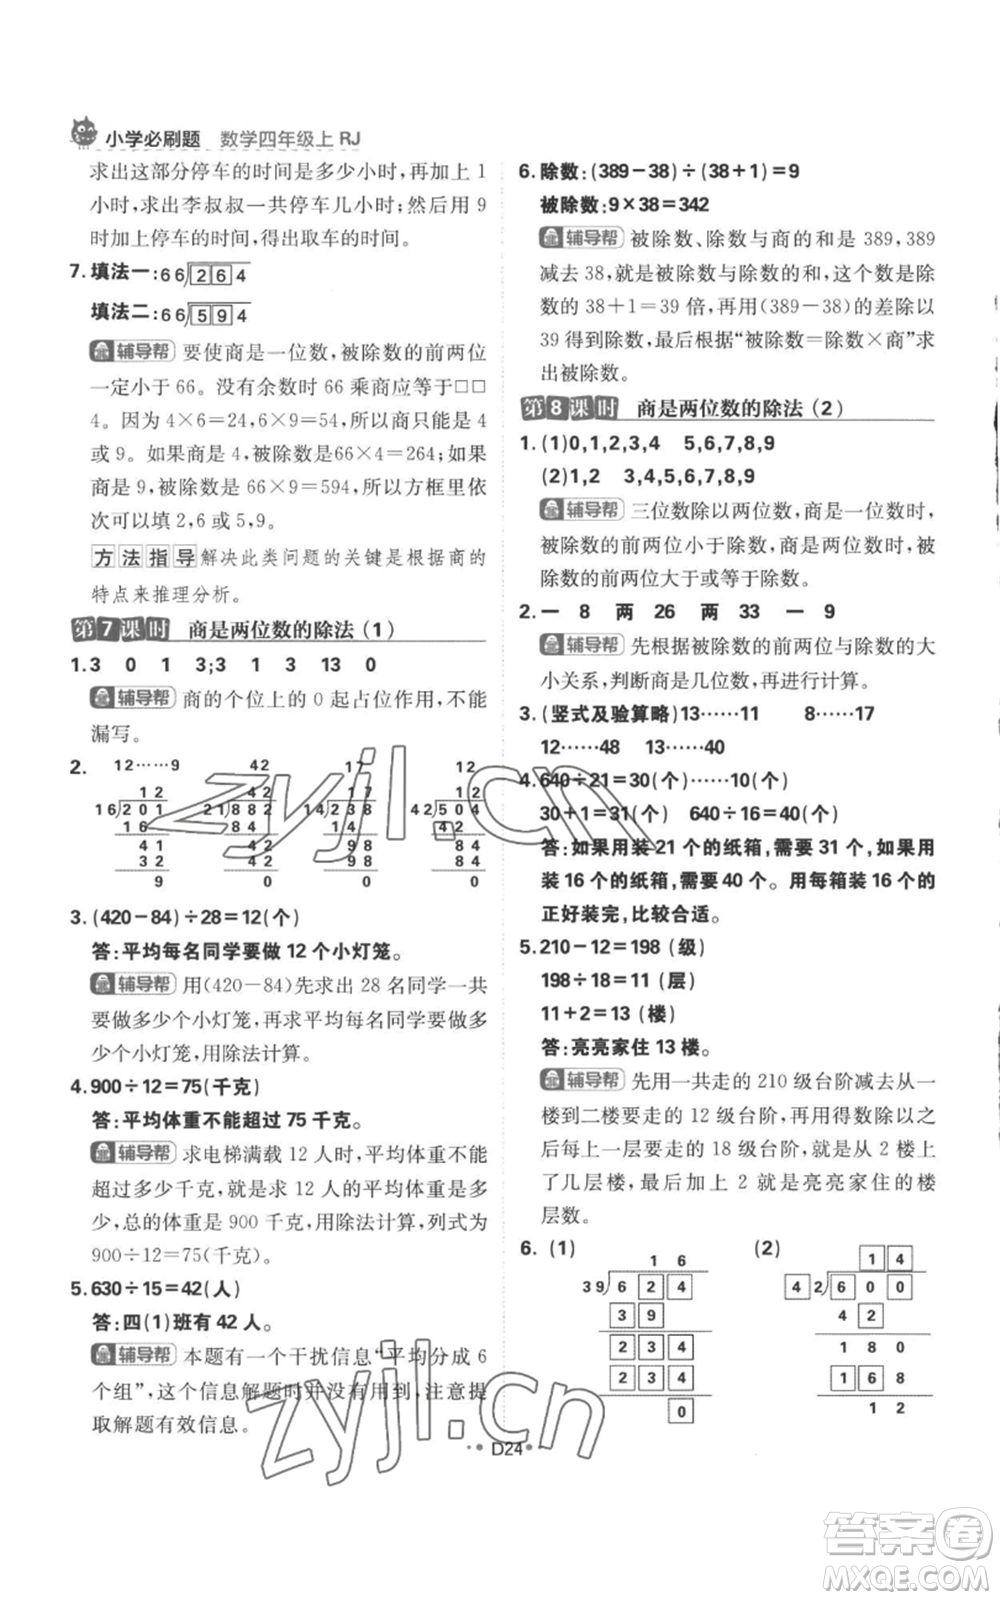 小学必刷题 数学四年级上 RJ
求出这部分停车的时间是多少小时,再加上1
小时,求出李叔叔一共停车几小时;然后用9
时加上停车的时间,得出取车的时间。
7. 填法一:66264
填法二:66594
辅导帮 要使商是一位数,被除数的前两位
一定小于66。没有余数时66乘商应等于□□
4。因为4×6=24,6×9=54,所以商只能是4
或9。如果商是4,被除数是66×4=264;如
果商是9,被除数是66×9=594,所以方框里依
次可以填2,6或5,9。
方法指导 解决此类问题的关键是根据商的
特点来推理分析。
第7课时 商是两位数的除法(1)
1.3 0 1 3;3 1 3 13 0
辅导帮 商的个位上的0起占位作用,不能
漏写。
2. 12……9 42 17 12
12 42 17 12
16201 21882 14238 42504
16 84 14 42
41 42 98 84
32 42 98 84
9 0 0 0
3. (420-84)÷28=12(个)
答:平均每名同学要做12个小灯笼。
辅导帮 用(420-84)先求出28名同学一共
要做多少个小灯笼,再求平均每名同学要做多
少个小灯笼,用除法计算。
4. 900÷12=75(千克)
答:平均体重不能超过75千克。
辅导帮 求电梯满载12人时,平均体重不能
超过多少千克,就是求12人的平均体重是多
少,总的体重是900千克,用除法计算,列式为
900÷12=75(千克)。
5. 630÷15=42(人)
答:四(1)班有42人。
辅导帮 本题有一个干扰信息“平均分成6
个组”,这个信息解题时并没有用到,注意提
取解题有效信息。
6. 除数:(389-38)÷(38+1)=9
被除数:9×38=342
辅导帮 被除数、除数与商的和是389,389
减去38,就是被除数与除数的和,这个数是除
数的38+1=39倍,再用(389-38)的差除以
39得到除数,最后根据“被除数=除数×商”求
出被除数。
第8课时 商是两位数的除法(2)
1. (1)0,1,2,3,4 5,6,7,8,9
(2)1,2 3,4,5,6,7,8,9
辅导帮 三位数除以两位数,商是一位数时,
被除数的前两位小于除数,商是两位数时,被
除数的前两位大于或等于除数。
2. 一 8 两 26 两 两 33 一 9
辅导帮 先根据被除数的前两位与除数的大
小关系,判断商是几位数,再进行计算。
3. (竖式及验算略)13……11 8……17
12……48 13……40
4. 640÷21=30(个)……10(个)
30+1=31(个) 640÷16=40(个)
答:如果用装21个的纸箱,需要31个,如果用
装16个的纸箱,需要40个。用每箱装16个的
正好装完,比较合适。
5. 210-12=198(级)
198÷18=11(层)
11+2=13(楼)
答:亮亮家住13楼。
辅导帮 先用一共走的210级台阶减去从一
楼到二楼要走的12级台阶,再用得数除以之
后每上一层要走的18级台阶,就是从2楼上
了几层楼,最后加上2就是亮亮家住的楼
层数。
6. (1) (2)
1 6 1 4
39624 42600
39 42
234 180
234 168
0 12
D24
zyjl.cn
zyjl.cn
答案圈
MXQE.COM